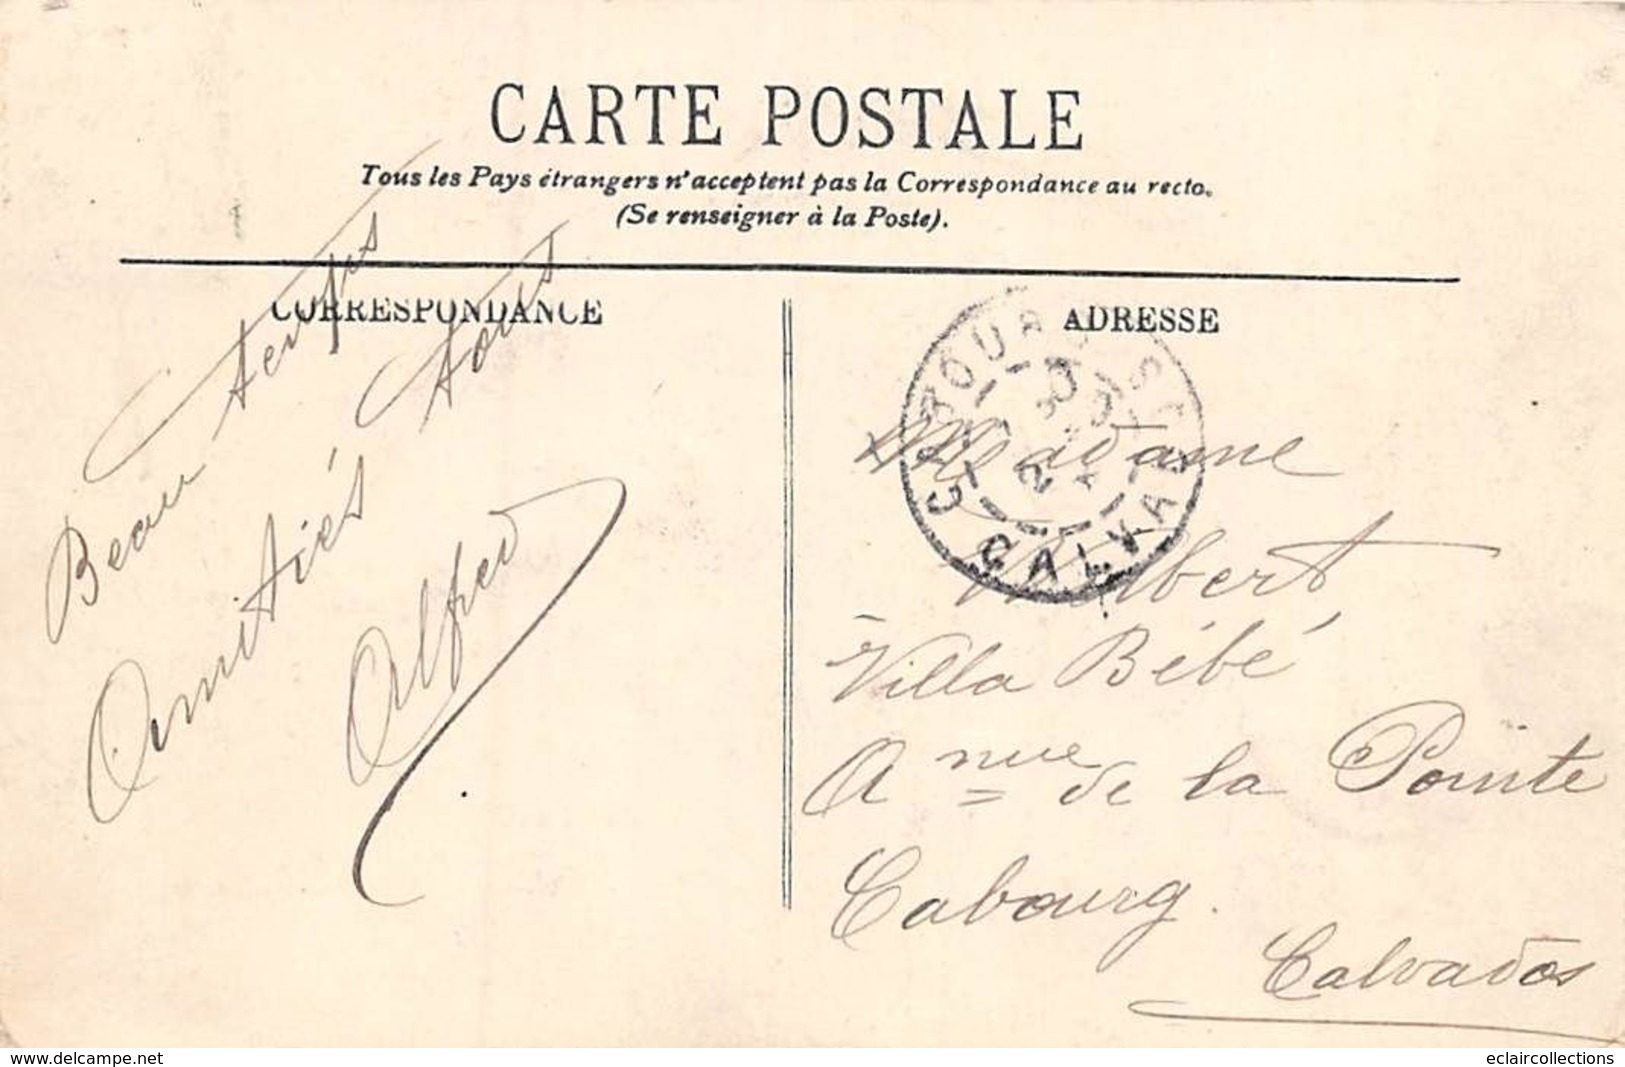 CARTE POSTALE
Tous les Pays étrangers n'acceptent pas la Correspondance au recto.
(Se renseigner à la Poste).
CORRESPONDANCE
ADRESSE
Beau temps
Amitiés à tous
Alfred
CABOURG
CALVADOS
Madame
Villa Bébé
Anue de la Pointe
Cabourg.
Calvados
www.delcampe.net
eclaircollections